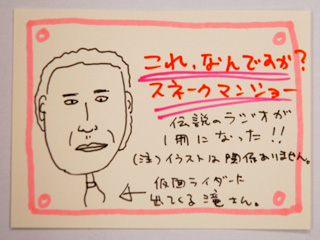 これ、なんですか?
スネークマンショー
伝説のラジオが
1冊になった!!
(注)イラストは関係ありません。
仮面ライダーに
出てくる滝さん。